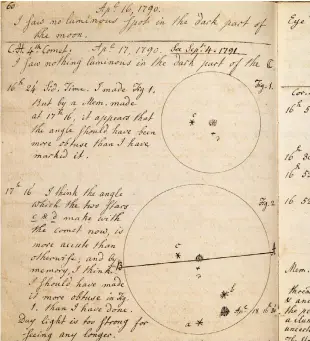 60
Apr. 16, 1790.
I saw no luminous spot in the dark part of
the moon.
C.H. 4th Comet. Apr. 17, 1790. See Sep. 4. 1791
I saw nothing luminous in the dark part of the ☾
16h 24' Sid. Time. I made Fig. 1.
But by a Mem. made
at 17h 16', it appears that
the angle should have been
more obtuse than I have
marked it.
Fig. 1.
c
17h 16' I think the angle
which the two stars
c & d make with
the comet now, is
more accute than
otherwise; and by
memory, I think
I should have made
it more obtuse in Fig.
1. than I have done.
Day light is too strong for
seeing any longer.
Fig. 2
c
b
a
Apr. 18. 16h
Eye
16h 5
16h
16h 52
16h 52
Mem.